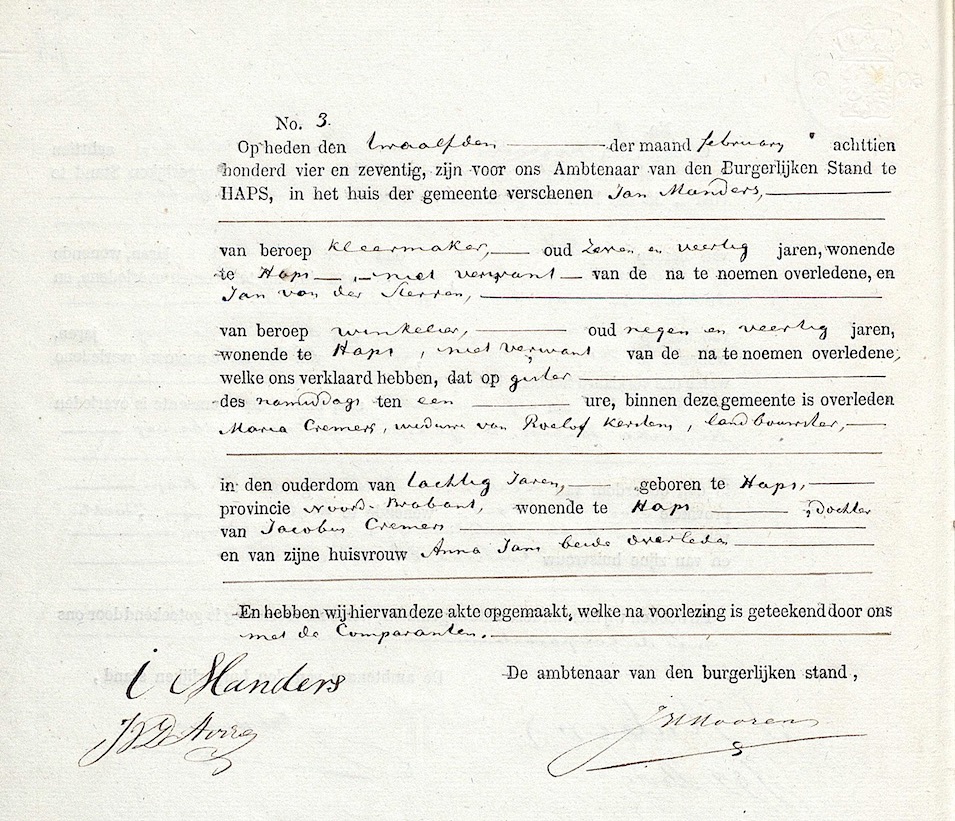 No. 3.
Op heden den twaalfden der maand february achttien
honderd vier en zeventig, zijn voor ons Ambtenaar van den Burgerlijken Stand te
HAPS, in het huis der gemeente verschenen Jan Manders,
van beroep kleermaker, oud zeven en veertig jaren, wonende
te Haps, niet verwant van de na te noemen overledene, en
Jan van der Sterren,
van beroep winkelier, oud negen en veertig jaren,
wonende te Haps, niet verwant van de na te noemen overledene,
welke ons verklaard hebben, dat op gister
des namiddags ten een ure, binnen deze gemeente is overleden
Maria Cremers, weduwe van Roelof Kersten, landbouwster,
in den ouderdom van tachtig Jaren, geboren te Haps,
provincie Noord-Brabant, wonende te Haps Dochter
van Jacobus Cremers
en van zijne huisvrouw Anna Jans beide overleden
En hebben wij hiervan deze akte opgemaakt, welke na voorlezing is geteekend door ons
met de Comparanten.
De ambtenaar van den burgerlijken stand,
Manders